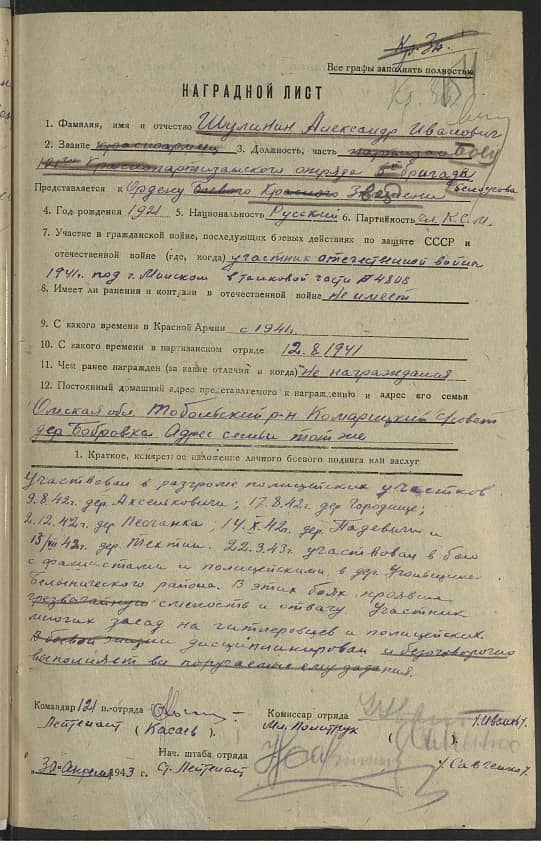 Кр. Зв.
Все графы заполнять полностью
Кр. Зв.
НАГРАДНОЙ ЛИСТ
1. Фамилия, имя и отчество Шулинин Александр Иванович
2. Звание красноармеец 3. Должность, часть партизан боец
121го Краснопартизанского отряда 5 бригада
Представляется к Ордену Боевого Красного Звезда
4. Год рождения 1921 5. Национальность Русский 6. Партийность чл. К.С.М.
7. Участие в гражданской войне, последующих боевых действиях по защите СССР и
отечественной войне (где, когда) участник отечественной войны
1941г. под г. Минском в танковой части №4808
8. Имеет ли ранения и контузии в отечественной войне не имеет
9. С какого времени в Красной Армии с 1941г.
10. С какого времени в партизанском отряде 12.8.1941
11. Чем ранее награжден (за какие отличия и когда) не награждался
12. Постоянный домашний адрес представляемого к награждению и адрес его семьи
Омская обл. Тобольский р-н. Комарицкий с/совет
дер. Бобровка Адрес семьи тот же
1. Краткое, конкретное изложение личного боевого подвига или заслуг
Участвовал в разгроме полицейских участков
9.8.42г. дер. ; 17.8.42г. дер. Городище;
2.12.42г. дер. ; 14.X.42г. дер. и
13/ 42г. дер. 22.9.43г. участвовал в бою
с фашистами и полицейскими, в дер.
Белыничского района. В этих боях проявил
чрезвычайную смелость и отвагу. Участник
многих засад на гитлеровцев и полицейских.
В боевой жизни дисциплинирован и безоговорочно
выполняет все поручаемые ему задания.
Командир 121 п.-отряда Комиссар отряда
Лейтенант (Касаев) Мл. Политрук /Иванов/
Нач. штаба отряда
30 Апреля 1943 г. Ст. Лейтенант /Савченко/